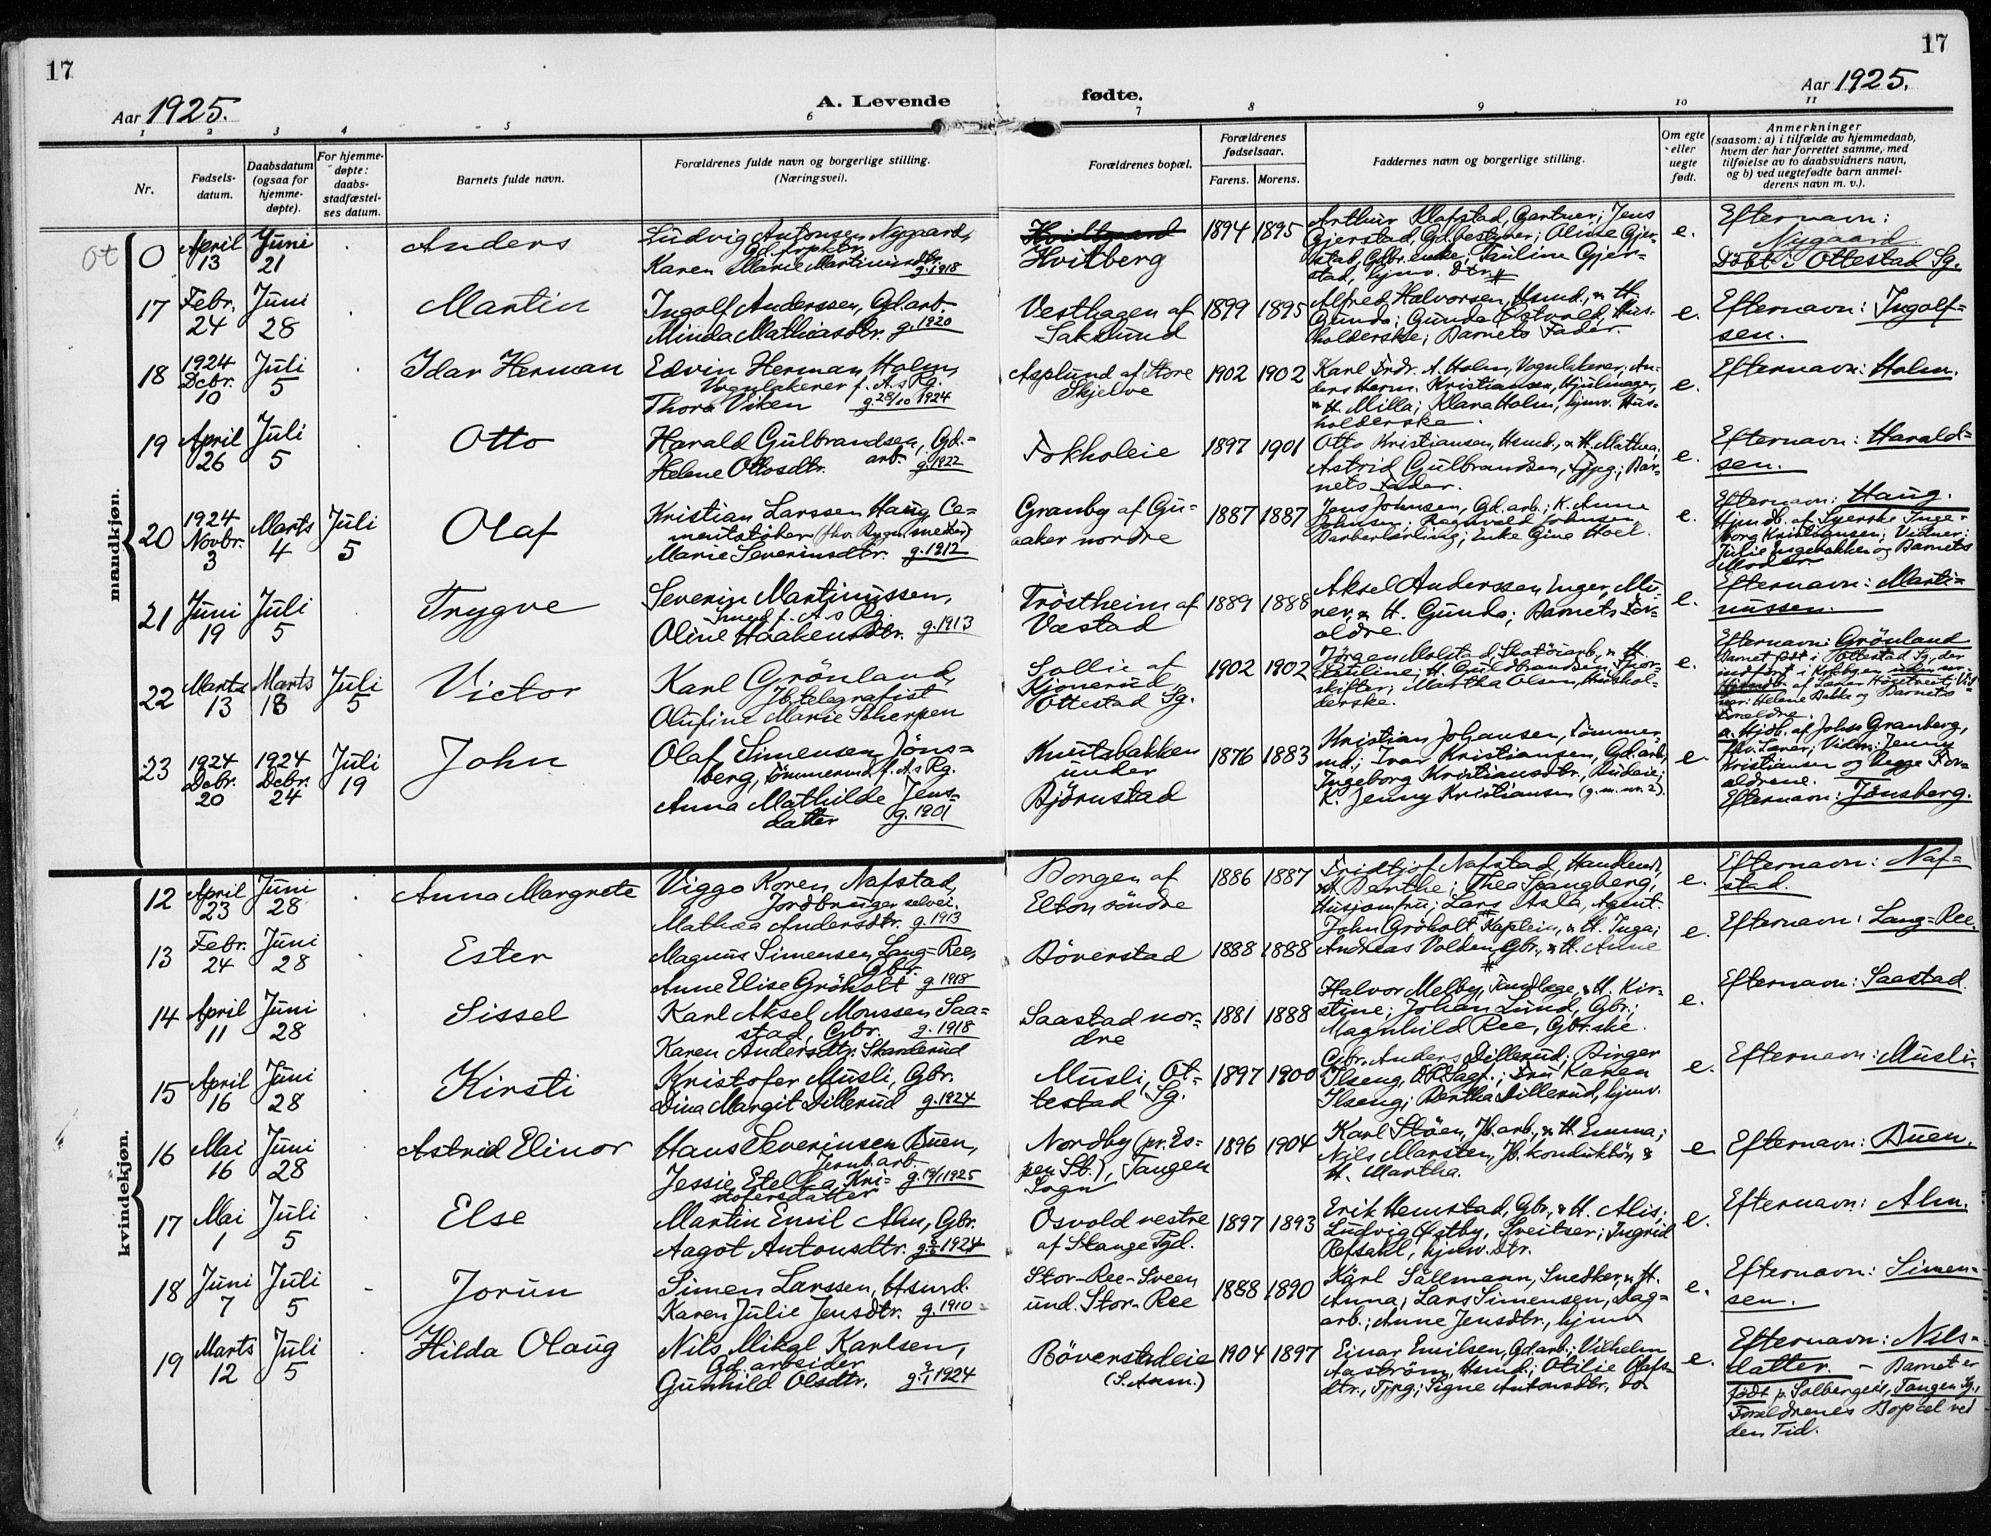 17
17
Aar 1925.
A. Levende
fødte.
Aar 1925.
1 2 3 4 5 6 7 8 9 10 11
Nr.
Fødsels-
datum.
Daabsdatum
(ogsaa for
hjemme-
døpte).
For hjemme-
døpte:
daabs-
stadfæstel-
ses datum.
Barnets fulde navn.
Forældrenes fulde navn og borgerlige stilling.
(Næringsvei).
Forældrenes bopæl.
Forældrenes
fødselsaar.
Farens. Morens.
Faddernes navn og borgerlige stilling.
Om egte
eller
uegte
født.
Anmerkninger
(saasom: a) i tilfælde av hjemmedaab,
hvem der har forrettet samme, med
tilføielse av to daabsvidners navn,
og b) ved uegtefødte barn anmel-
derens navn m. v.).
mandkjøn.
Ot 0
April
13
Juni
21
Anders
Ludvig Antonsen Nygaard,
Karen Marie Martinusdtr.
g. 1918
Hvitberg
1894 1895
Arthur Klafstad, Gartner; Jens
Gjerstad, Gd.bestyrer; Oline Gjer-
stad, Gbr. enke; Pauline Gjer-
stad, hjmv. dtr.
e.
Efternavn:
Nygaard
Döbt i Ottestad Sg.
17
Febr.
24
Juni
28
Martin
Ingolf Anderssen, Gd.arb.
Minda Mathiasdtr. g. 1920
Vesthagen af
Sakslund
1899 1895
Alfred Halvorsen, Hsmd., & H.
Gunda; Gunda Östvold, Hus-
holderske; Barnets Fader.
e.
Efternavn: Ingolf-
sen.
18
1924
Dcbr.
10
Juli
5
Idar Herman
Edvin Herman Holm,
Vognlakerer f. A s Rg.
Thora Viken g. 28/10 1924
Asplund af Store
Skjelve
1902 1902
Karl Frdr. A. Holm, Vognlakerer, An-
ders Herm. Kristiansen, Hjulmager,
& H. Milla; Klara Holm, hjmv. Hus-
holderske.
e.
Efternavn: Holm.
19
April
26
Juli
5
Otto
Harald Gulbrandsen, Gd.=
arb.
Helene Ottosdtr. g. 1922
Fokholeie
1897 1901
Otto Kristiansen, Hsmd., & H. Mathea;
Astrid Gulbrandsen, Tjpg; Bar-
nets Fader.
e.
Efternavn: Harald-
sen.
20
1924
Novbr.
3
Marts
4
Juli
5
Olaf
Kristian Larssen Haug Ce-
mentstøber
Marie Severinsdtr. g. 1912
Granby af Gu-
aaker nordre
1887 1887
Jens Johnsen, Gd.arb.; K. Anne
Johnsen; Regnvald Johnsen,
Barberlærling; Enke Gina Hoel.
e.
Efternavn: Haug.
Hjmdb. af Syerske Inge-
borg Kristiansen; Vidner:
Julie Ingebakken og Barnets
Moder
21
Juni
19
Juli
5
Trygve
Severin Martinussen,
Smed f. A s Rg.
Oline Haakensdtr. g. 1913
Tröstheim af
Væstad
1889 1888
Aksel Anderssen Enger, Mu-
rer, & H. Gunda; Barnets For-
ældre.
e.
Efternavn: Marti-
nussen.
22
Marts
13
Marts
18
Juli
5
Victor
Karl Grönland,
Jb.telegrafist
Olufine Marie Scherpen
Sollie af
Kjonerud,
Ottestad Sg.
1902 1902
Jörgen Molstad, Skotöiarb., & H.
Pauline; H. Guldbrandsen, Spor-
skifter; Martha Olsen, Hushol-
derske.
e.
Efternavn: Grönland
Barnet født i Ottestad Sg.
23
1924
Dcbr.
20
1924
Dcbr.
24
Juli
19
John
Olaf Simensen Jöns=
berg, Tömmermd f. A s Rg.
Anna Mathilde Jens-
datter g. 1901
Knutsbakken
under
Björnstad
1876 1883
Kristian Johansen, Tömmer-
md; Ivar Kristiansen, Gd.arb;
Ingeborg Kristiansdtr., Budeie;
K. Jenny Kristiansen (g. m. nr. 2).
e.
a. Hjdb. af Johs. Granberg,
fhv. Lærer; Vidn: Jenny
Kristiansen og begge For-
ældrene.
Efternavn: Jönsberg.
kvindekjøn.
12
April
23
Juni
28
Anna Margrete
Viggo Koren Nafstad,
Jordbruger selvei.
Mathea Andersdtr. g. 1913
Borgen af
Elton söndre
1886 1887
Fridtjof Nafstad, Handlend.,
& Barthe; Thea Spangberg,
Husjomfru; Lars Asla, Agent.
e.
Efternavn: Naf-
stad.
13
Febr.
24
Juni
28
Ester
Magnus Simensen Lang=Ree,
Gbr.
Anne Elise Gröholt g. 1918
Böverstad
1888 1888
John Gröholt, Kaptein, & H. Inga;
Andreas Volden, Gbr., & H. Anne
e.
Efternavn: Lang=Ree.
14
April
11
Juni
28
Sissel
Karl Aksel Monssen Saa=
stad, Gbr. g. 1918
Karen Andersdtr. Skarderud
Saastad nor-
dre
1881 1888
Halvor Melby, Tandlæge, & H. Kir-
stine; Johan Lund, Gbr;
Magnhild Ree, Gbr.ske.
e.
Efternavn: Saastad.
15
April
16
Juni
28
Kirsti
Kristofer Musli, Gbr.
Dina Margit Dillerud g. 1924
Musli, Ot-
testad Sg.
1897 1900
Gbr. Anders Dillerud; Birger
Ilseng, O.R.Sagf.; Fru Karen
Ilseng; Bertha Dillerud, hjmv.
e.
Efternavn: Musli.
16
Mai
16
Juni
28
Astrid Elinor
Hans Severinsen Buen,
Jernb.arb.
Jessie Etelka Kri-
stofersdatter g. 19/1 1925
Nordby (pr. Es-
pen St.), Tangen
Sogn
1896 1904
Karl Stöen, Jb.arb., & H. Emma;
Nils Marsten, Jb.konduktör, &
H. Martha.
e.
Efternavn: Buen.
17
Mai
1
Juli
5
Else
Martin Emil Alm, Gbr.
Aagot Antonsdtr. g. 1924
Osvold vestre
af Stange Pgd.
1897 1893
Erik Hemstad, Gbr., & H. Alis;
Ludvig Østby, Sveitser; Ingrid
Refsahl, hjmv. Dtr.
e.
Efternavn: Alm.
18
Juni
7
Juli
5
Jorun
Simen Larssen, Hsmd.
Karen Julie Jensdtr. g. 1910
Stor-Ree-Sveen
und. Stor-Ree
1888 1890
Karl Sällmann, Snedker, & H.
Anna; Lars Simensen, Dag-
arb.; Anne Jensdtr., hjmv
e.
Efternavn: Simen-
sen.
19
Marts
12
Juli
5
Hilda Olaug
Nils Mikal Karlsen,
Gd.arbeider
Gunhild Olsdtr. g. 1924
Böverstadeie
(S. Anm.)
1904 1897
Einar Emilsen, Gd.arb.; Vilhelm
Aaström, Hsmd; Otilie Olafs-
dtr., Tjpg; Signe Antonsdtr.
e.
Efternavn: Nils-
datter. - Barnet er
født p. Solbergeie, Tangen Sg.,
Forældrenes Bopæl ved
den Tid.